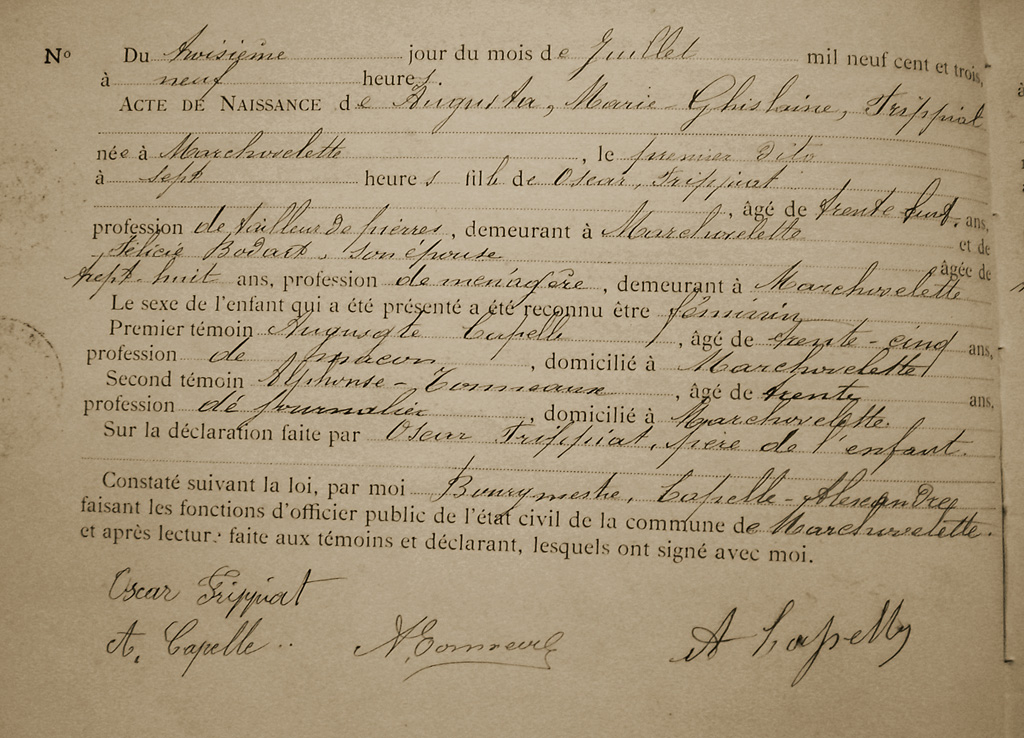 Nº Du troisième jour du mois de Juillet mil neuf cent et trois,
à neuf heures.
ACTE DE NAISSANCE de Augusta, Marie-Ghislaine, Frippiat
née à Marchovelette, le premier dito
à sept heures fille de Oscar, Frippiat
, âgé de trente huit ans,
profession de tailleur de pierres, demeurant à Marchovelette
et de
Félicie Bodart, son épouse
âgée de
huit ans, profession de ménagère, demeurant à Marchovelette
Le sexe de l'enfant qui a été présenté a été reconnu être féminin
Premier témoin Auguste Capelle, âgé de trente-cinq ans,
profession de maçon, domicilié à Marchovelette
Second témoin Alphonse-Tonneaux, âgé de trente ans,
profession de journalier, domicilié à Marchovelette.
Sur la déclaration faite par Oscar Frippiat, père de l'enfant.
Constaté suivant la loi, par moi Bourgmestre, Capelle-Alexandre
faisant les fonctions d'officier public de l'état civil de la commune de Marchovelette.
et après lecture faite aux témoins et déclarant, lesquels ont signé avec moi.
Oscar Frippiat
A. Capelle A. Tonneaux A Capelle